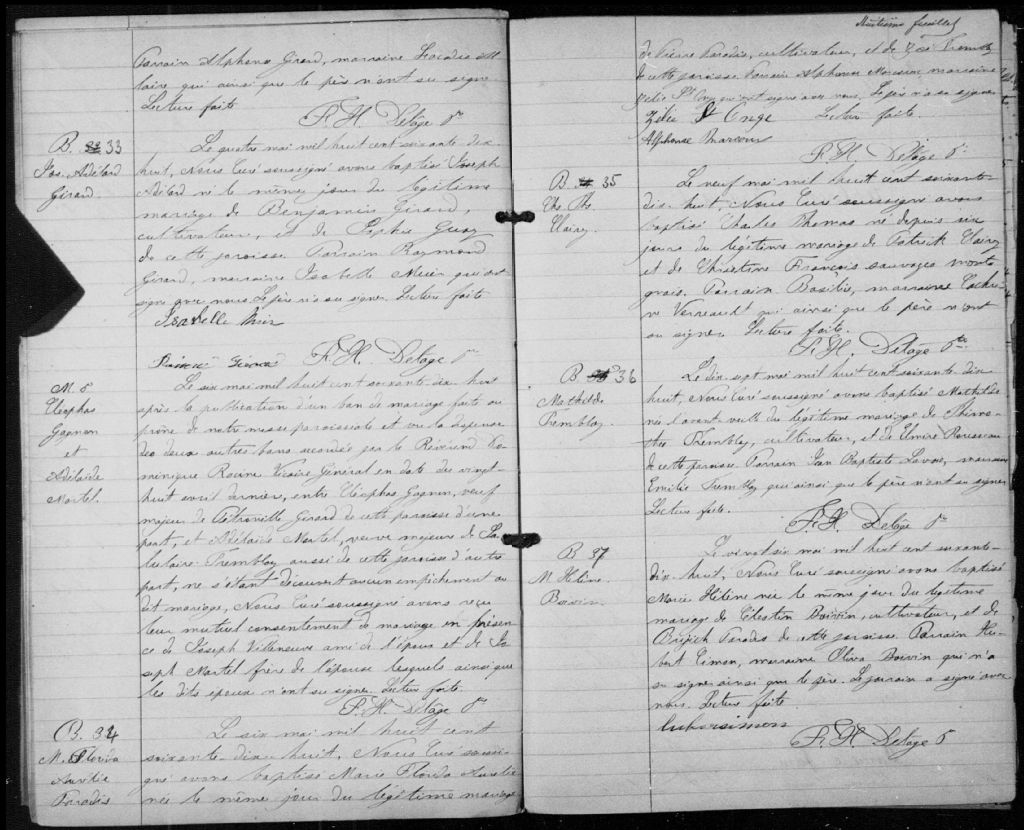 Parrain Alphonse Girard, marraine Léocadie Al
laire qui ainsi que le père n'ont su signer
Lecture faite
F. H. Delâge Ptre
B. 33
Jos. Adélard
Girard
Le quatre mai mil huit cent soixante dix
huit, Nous Curé soussigné avons baptisé Joseph
Adélard né le même jour du légitime
mariage de Benjamin Girard,
cultivateur, et de Sophie Guay
de cette paroisse. Parrain Raymond
Girard, marraine Isabelle Murin qui ont
signé avec nous. Le père n'a su signer. Lecture faite
Isabelle
Girard F. H. Delâge Ptre
M. 6
Cléophas
Gagnon
et
Adélaïde
Martel.
Le six mai mil huit cent soixante dix huit
après la publication d'un ban de mariage faite au
prône de notre messe paroissiale et vu la dispense
des deux autres bans accordée par le Révérend Do
minique Racine Vicaire Général en date du vingt-
huit avril dernier, entre Cléophas Gagnon, veuf
majeur de Pétronille Girard de cette paroisse d'une
part, et Adélaïde Martel, veuve majeure de
Tremblay aussi de cette paroisse d'autre
part, ne s'étant découvert aucun empêchement au
dit mariage, Nous Curé soussigné avons reçu
leur mutuel consentement de mariage en présen
ce de Joseph Villeneuve ami de l'époux et de Jo
seph Martel frère de l'épouse lesquels ainsi que
les dits époux n'ont su signer. Lecture faite.
F. H. Delâge Ptre
B. 34
M. Florida
Aurélie
Paradis
Le six mai mil huit cent
soixante dix huit, Nous Curé soussi-
gné avons baptisé Marie Florida Aurélie
née le même jour du légitime mariage
Huitième feuillet
de Pierre Paradis, cultivateur, et de Zoé Trembl
de cette paroisse. Parrain Alphonse marraine
Zélie St Onge qui ont signé avec nous. Le père n'a su signer
Zélie St Onge Lecture faite
Alphonse
F. H. Delâge Ptre
B 35
Chs Ths
Clairy.
Le neuf mai mil huit cent soixante-
dix-huit Nous Curé soussigné avons
baptisé Charles Thomas né depuis six
jours du légitime mariage de Patrick Clairy
et de Christine François sauvages monta
gnais. Parrain Basilie, marraine Cathe-
ne Verreault qui ainsi que le père n'ont
su signer. Lecture faite.
F. H. Delâge Ptre
B 36
Mathilde
Tremblay.
Le dix sept mai mil huit cent soixante dix
huit, Nous Curé soussigné avons baptisé Mathilde
née l'avant-veille du légitime mariage de Thimo-
thée Tremblay, cultivateur, et de Elmire Rousseau
de cette paroisse Parrain Jean Baptiste Lavoie, marraine
Emilie Tremblay qui ainsi que le père n'ont su signer
Lecture faite.
F. H. Delâge Ptre
B 37
M. Hélène
Boivin.
Le vingt six mai mil huit cent soixante-
dix-huit, Nous Curé soussigné avons baptisé
Marie Hélène née le même jour du légitime
mariage de Célestin Boivin, cultivateur, et de
Brigith Paradis de cette paroisse. Parrain Hu-
bert Simon, marraine Oliva Boivin qui n'a
su signer ainsi que le père. Le parrain a signé avec
nous. Lecture faite
Huber simon
F. H. Delâge Ptre